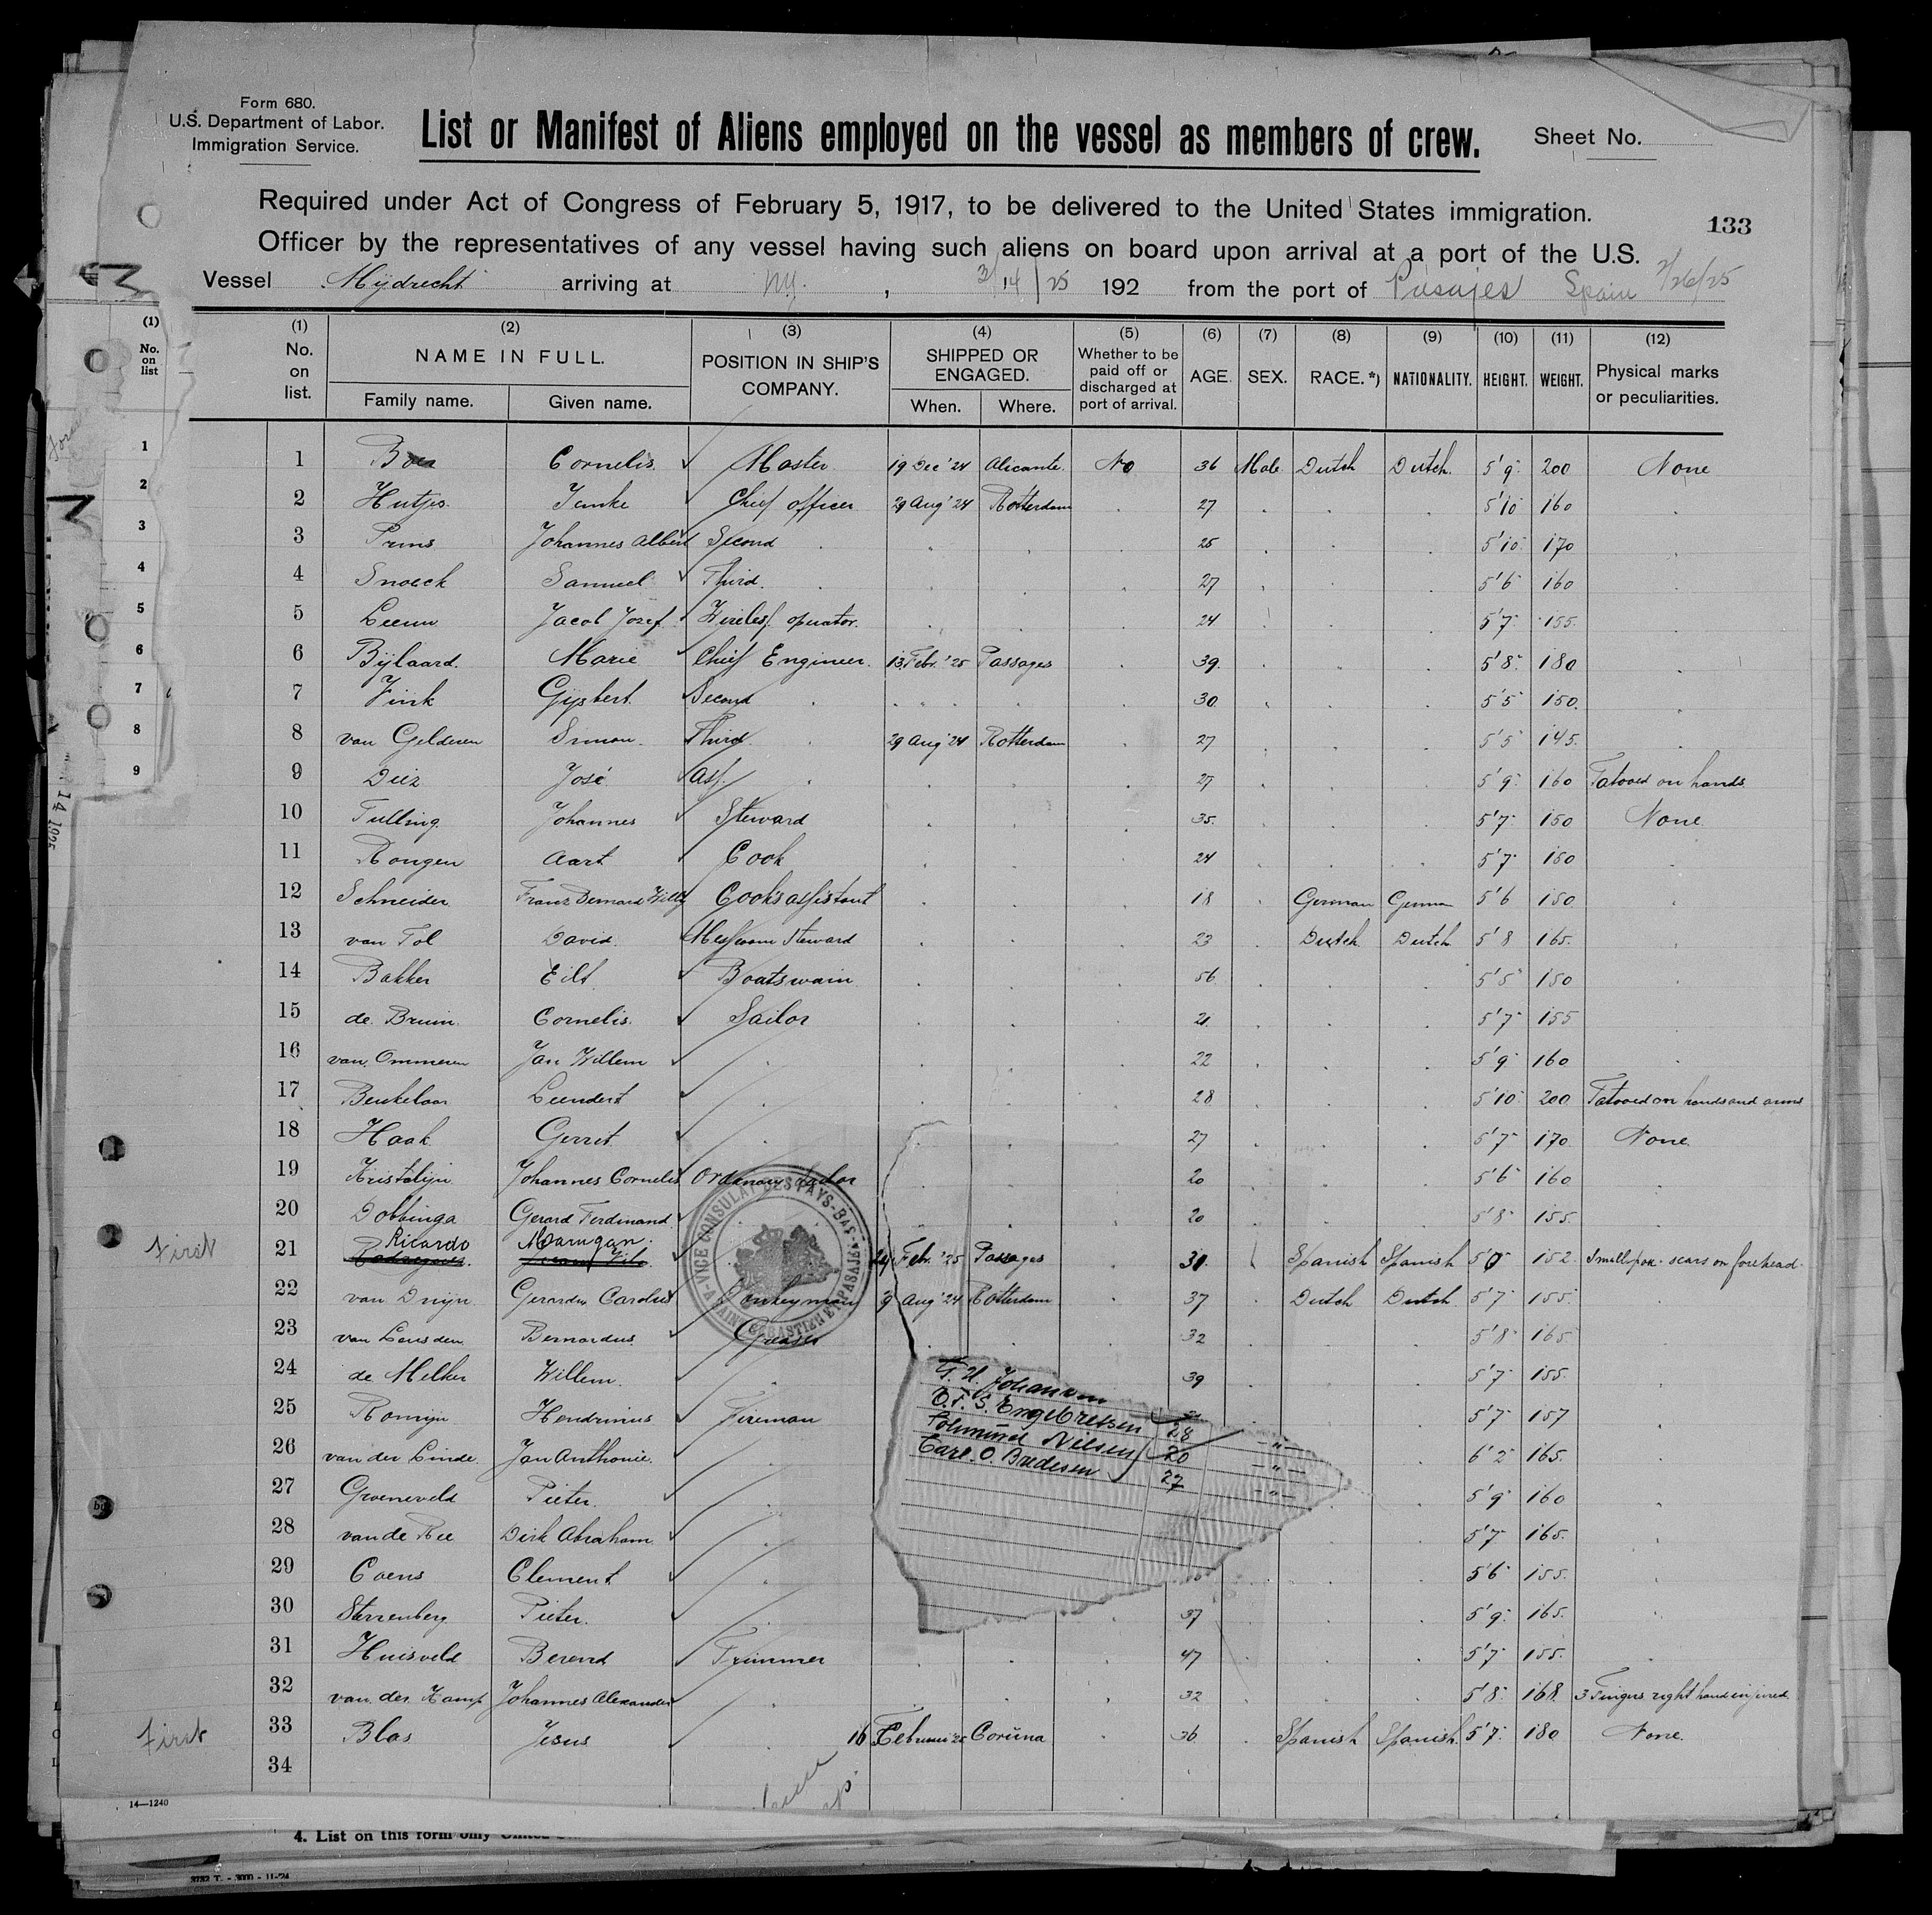 Form 680.
U.S. Department of Labor.
Immigration Service.
List or Manifest of Aliens employed on the vessel as members of crew.
Sheet No.
Required under Act of Congress of February 5, 1917, to be delivered to the United States immigration.
133
Officer by the representatives of any vessel having such aliens on board upon arrival at a port of the U.S.
Vessel Mijdrecht arriving at N.Y. , 3/14/25 192 from the port of Pasajes Spain 2/26/25
(1) (1) (2) (3) (4) (5) (6) (7) (8) (9) (10) (11) (12)
No. on list No. on list. NAME IN FULL. POSITION IN SHIP'S COMPANY. SHIPPED OR ENGAGED. Whether to be paid off or discharged at port of arrival. AGE. SEX. RACE.*) NATIONALITY. HEIGHT. WEIGHT. Physical marks or peculiarities.
Family name. Given name. When. Where.
1 Boer Cornelis Master 19 Dec '24 Alicante No 36 Male Dutch Dutch 5'9" 200 None
2 Hutjes Jemke Chief officer 29 Aug '24 Rotterdam 27 5'10" 160
3 Prins Johannes Albert Second 25 5'10" 170
4 Snoeck Samuel Third 27 5'6" 160
5 Jacob Jozef Wireless operator 24 5'7" 155
6 Bijlaard Marie Chief Engineer 13 Febr. '25 Passages 39 5'8" 180
7 Vink Gijsbert Second 30 5'5" 150
8 van Gelderen Simon Third 29 Aug '24 Rotterdam 27 5'5" 145
9 Diez José Ass. 27 5'9" 160 Tatooed on hands
10 Tulling Johannes Steward 35 5'7" 150 None
11 Rongen Aart Cook 24 5'7" 150
12 Schneider Franz Bernard Willy Cooks assistant 18 German German 5'6 150
13 van Tol David Messroom Steward 23 Dutch Dutch 5'8 165
14 Bakker Eilt Boatswain 56 5'5" 150
15 de Bruin Cornelis Sailor 21 5'7" 155
16 van Ommeren Jan Willem 22 5'9" 160
17 Beukelaar Leendert 28 5'10" 200 Tatooed on hands and arms
18 Haak Gerrit 27 5'7" 170 None
19 Kristalijn Johannes Cornelis Ordinary sailor 20 5'6" 160
20 Dobbinga Gerard Ferdinand 20 5'8" 155
First 21 Ricardo Marugan 24 Febr. '25 Passages 31 Spanish Spanish 152 Smallpox scars on forehead
22 van Duijn Gerardus Carolus Donkeyman 29 Aug '24 Rotterdam 37 Dutch Dutch 5'7" 155
23 van Leusden Bernardus Greaser 32 5'8" 165
24 de Melker Willem 39 5'7" 155
25 Romijn Hendrinus Fireman 5'7" 157
26 van der Linde Jan Anthonie 6'2" 165
27 Groeneveld Pieter 5'9" 160
28 van de Ree Dirk Abraham 5'7" 165
29 Coens Clement 5'6" 155
30 Sterrenberg Pieter 37 5'9" 165
31 Huisveld Berend Trimmer 47 5'7" 155
32 van der Kamp Johannes Alexander 32 5'8" 168 3 Fingers right hand injured
First 33 Blas Jesus 16 Februari '25 Coruna 36 Spanish Spanish 5'7" 180 None
34
VICE CONSULAT DES PAYS-BAS
A SAINT SEBASTIEN ET PASAJES
Johansen
O. F. S. Engebretsen 28
Nielsen 20
Carl. O. Bredesen 27
1
2
3
4
5
6
7
8
9
14 1925
14—1240
4. List on this form only
3732 T. - 3000 - 11-24